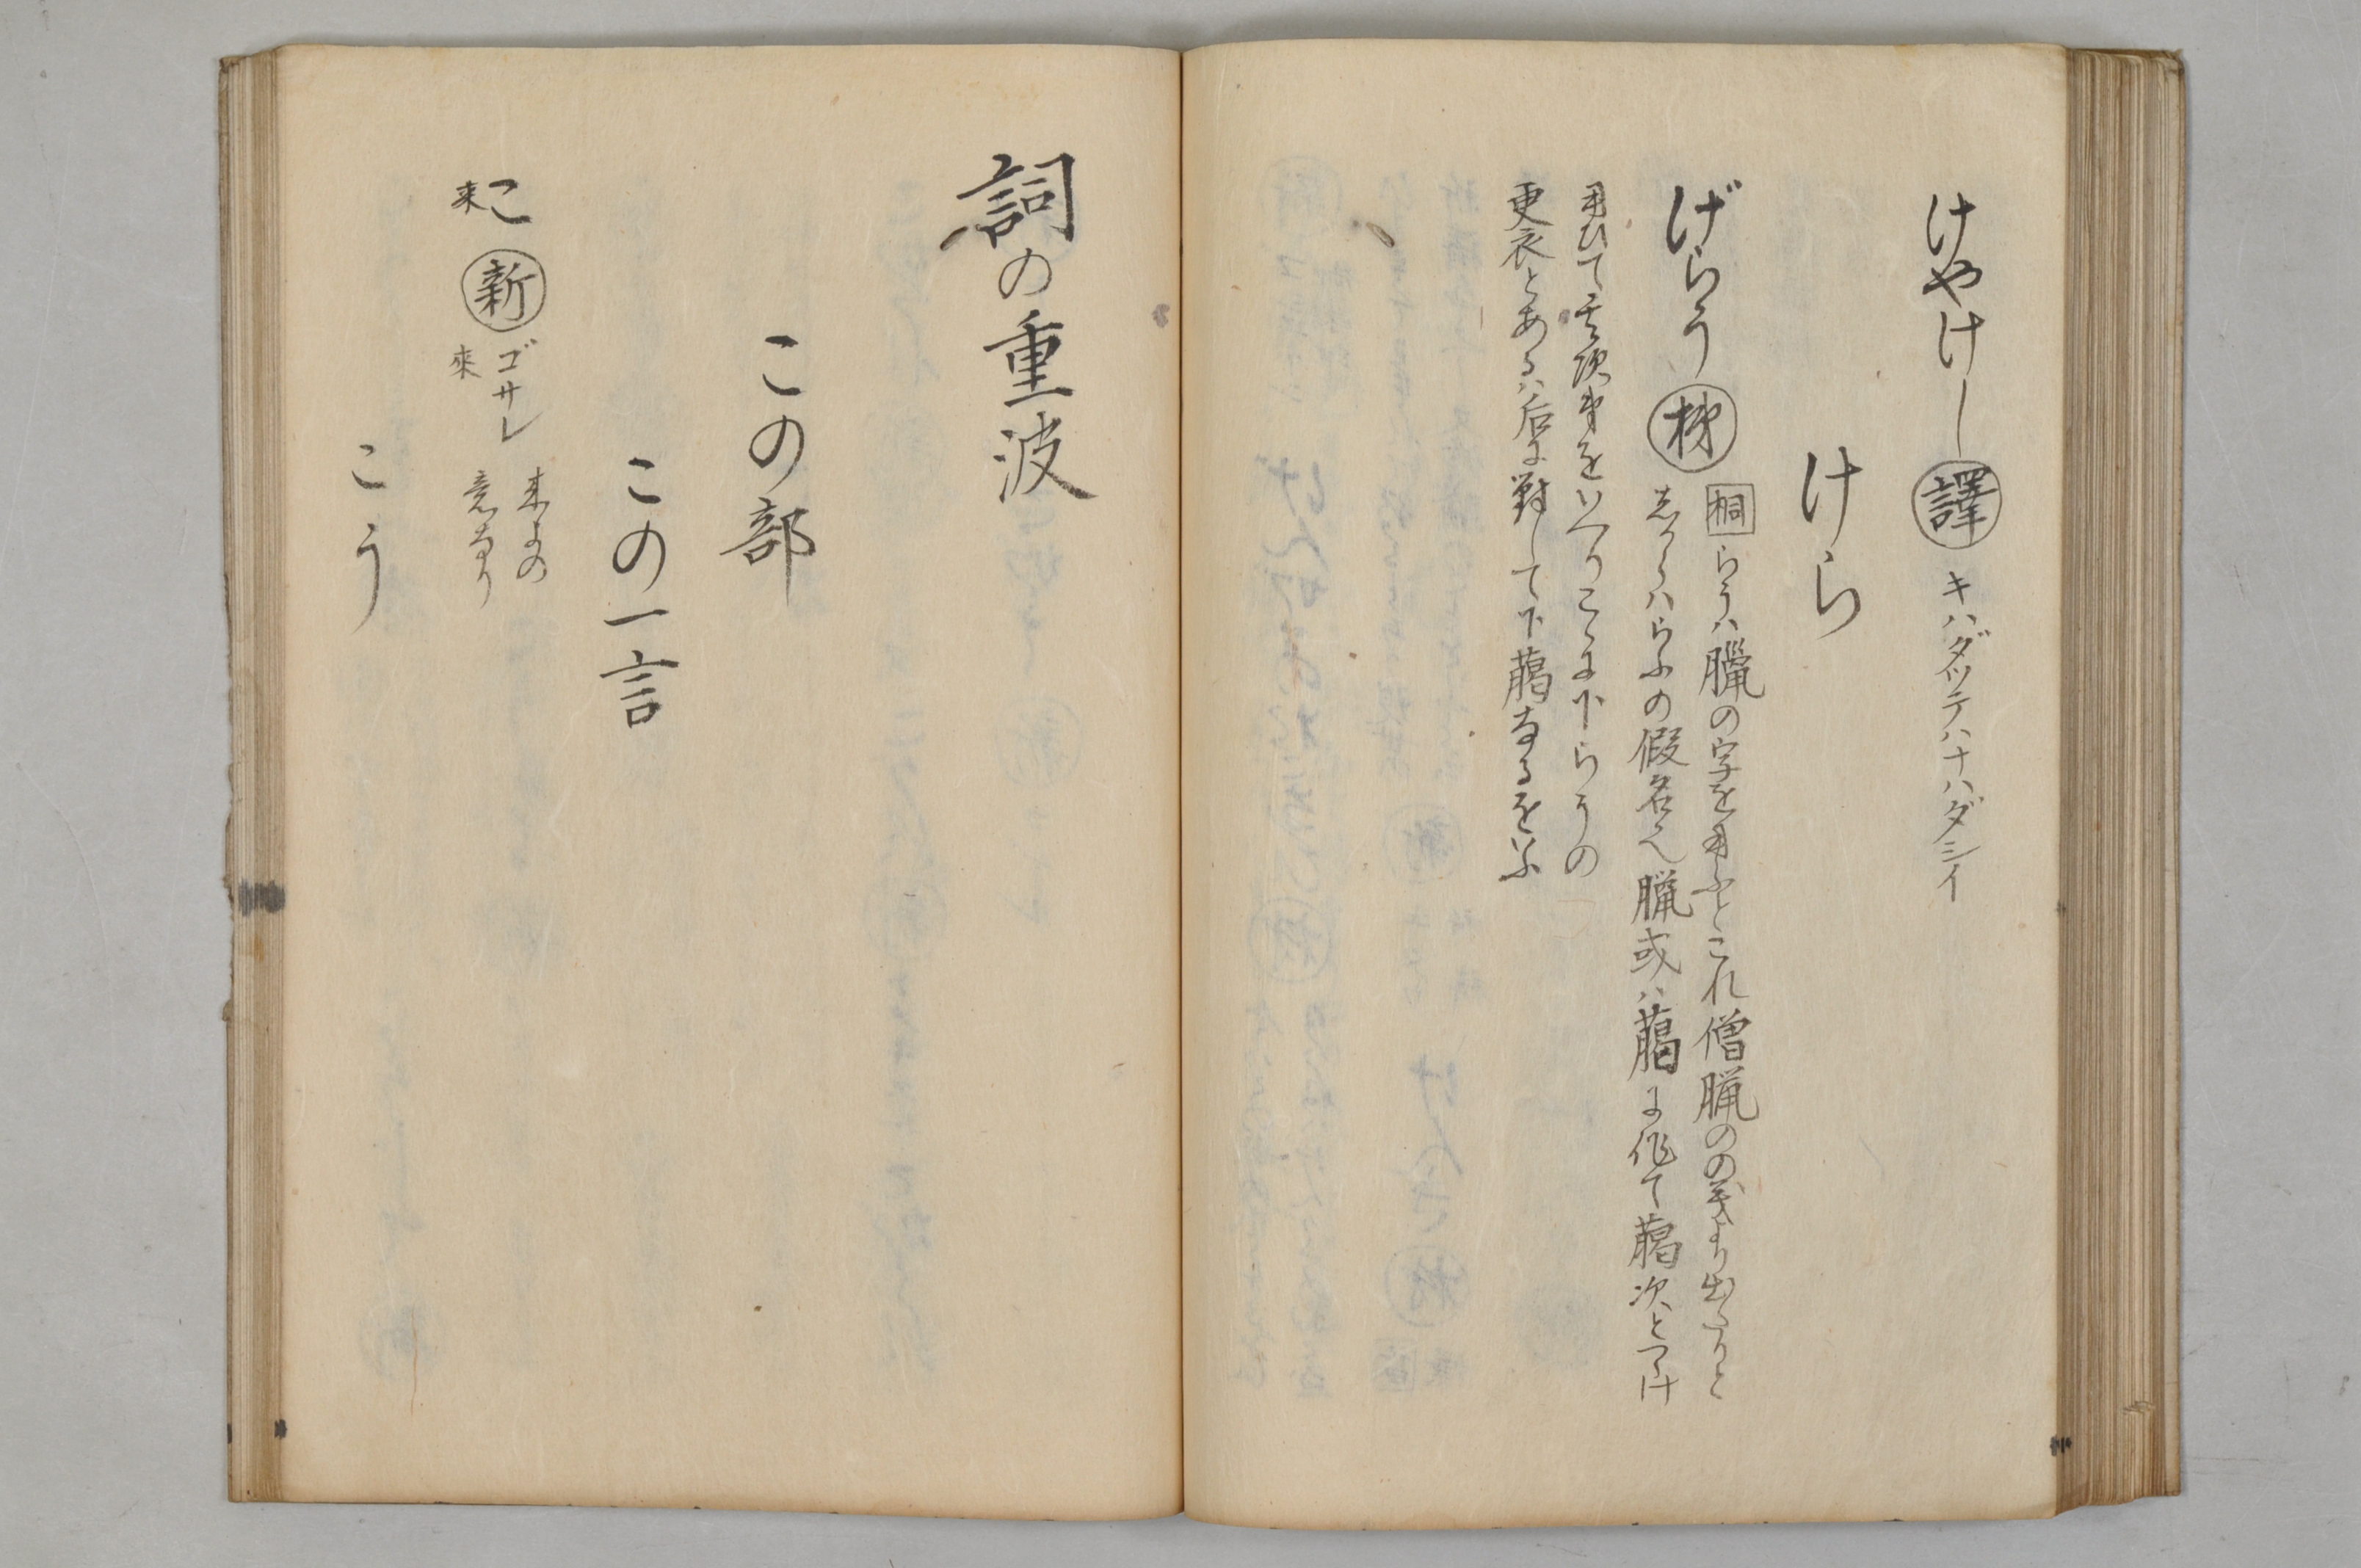 けやけし 譯 キハダツテハナハダシイ
けら
げらう 梯 桐 らうハ臈の字を用ふとこれ僧臘のの義より出たりと
しからハらふの假名也臘或ハ臈に作て臈次とつゝけ
用ひて其次第をいへりこゝに下らうの
更衣とあるハ后に對して下臈なるをいふ
詞の重波
この部
この一言
こ 来 新 ゴサレ 來 来よの
意なり
こう